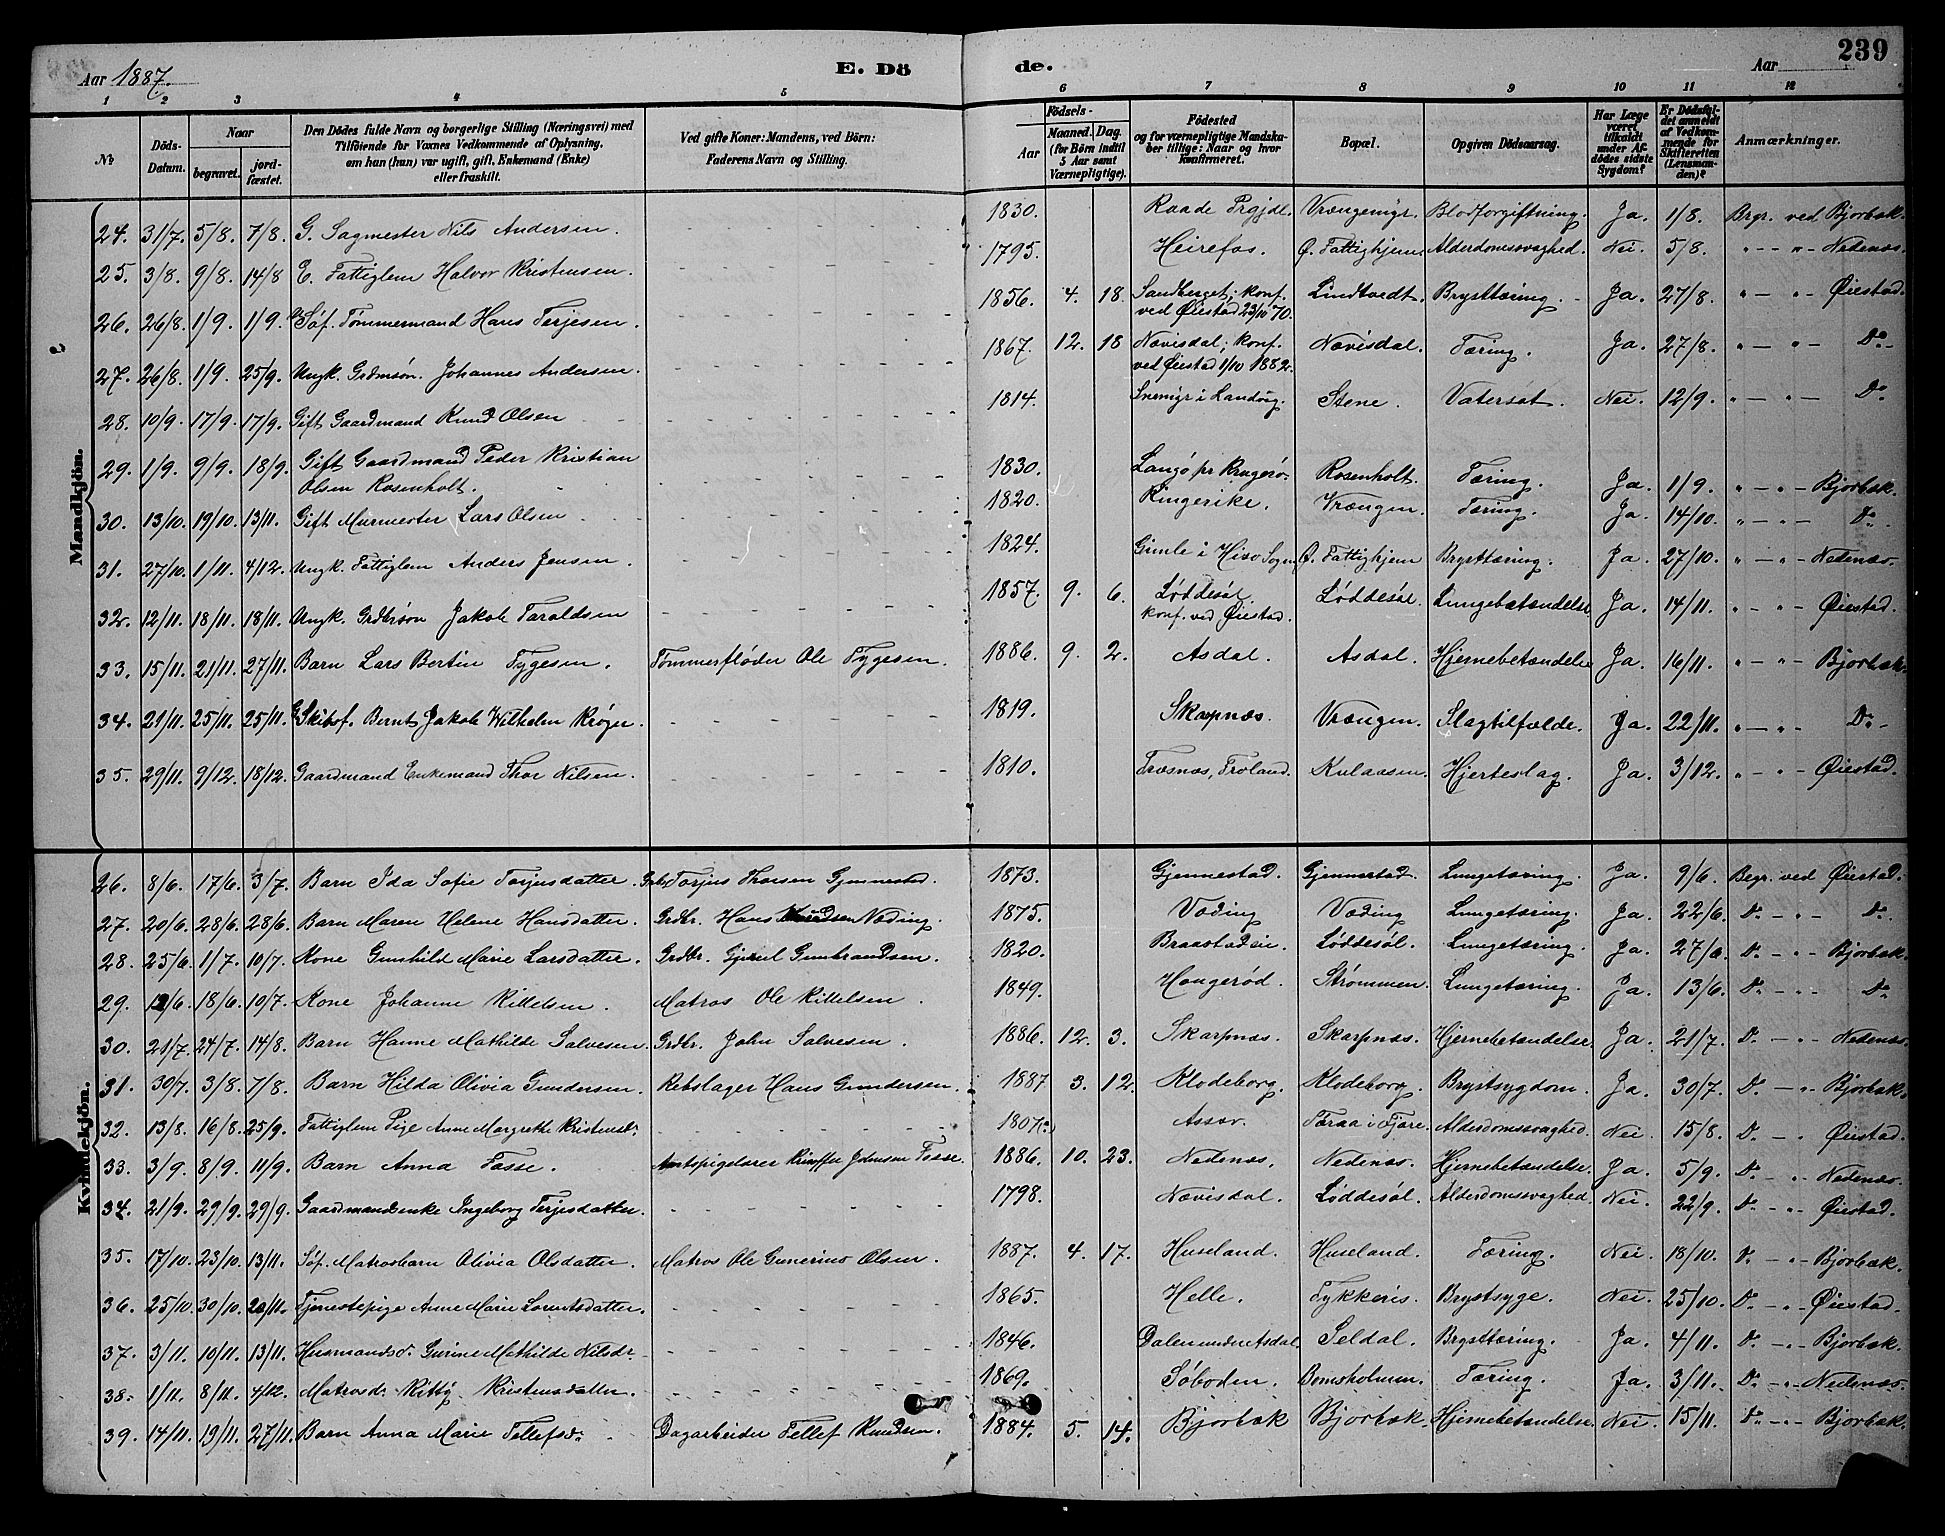 Aar 1887. E. Dö de. Aar 239
1 2 3 4 5 6 7 8 9 10 11 12
No
Döds-Datum.
Naar
begravet. jord-fæstet.
Den Dödes fulde Navn og borgerlige Stilling (Næringsvei) med Tilföiende for Voxnes Vedkommende af Oplysning, om han (hun) var ugift, gift, Enkemand (Enke) eller fraskilt.
Ved gifte Koner: Mandens, ved Börn: Faderens Navn og Stilling.
Födsels-
Aar Maaned. Dag. (for Börn indtil 5 Aar samt Værnepligtige).
Födested og for værnepligtige Mandskaber tillige: Naar og hvor Konfirmeret.
Bopæl.
Opgiven Dödsaarsag.
Har Læge været tilkaldt under Afdödes sidste Sygdom?
Er Dödsfaldet anmeldt af Vedkommende for Skifteretten (Lensmanden)?
Anmærkninger.
Mandkjön.
24. 31/7. 5/8. 7/8. G. Sagmester Nils Andersen. 1830. Raade Prgjd. Vrængemyr. Blodforgiftning. Ja. 1/8. Begr. ved Bjorbæk.
25. 3/8. 9/8. 14/8 E. Fattiglem Halvor Kristensen. 1795. Heirefos. Ø. Fattighjem. Alderdomssvaghed. Nei. 5/8. " - " - Nedenæs.
26. 26/8. 1/9. 1/9. G. Søf. Tømmermand Hans Terjesen. 1856. 4. 18. Sandberget; konf. ved Øiestad 23/10 70. Lindtvedt. Brysttæring. Ja. 27/8. " - " - Øiestad.
27. 26/8. 1/9. 25/9. Ungk. Grdmsøn. Johannes Andersen. 1867. 12. 18 Nævisdal; konf. ved Øiestad 1/10 1882. Nævisdal. Tæring. Ja. 27/8. " - " - Do
28. 10/9. 17/9. 17/9. Gift Gaardmand Knud Olsen 1814. i Landvig. Stene. Vatersot. Nei. 12/9. " - " - Do
29. 1/9. 9/9. 18/9. Gift Gaardmand Peder Kristian Olsen Rosenholt. 1830. Langø pr Kragerø. Rosenholt. Tæring. Ja. 1/9. " - " - Bjorbæk.
30. 13/10. 19/10. 13/11. Gift Murmester Lars Olsen 1820. Ringerike. Vrængen. Tæring. Ja. 14/10. " - " - Do
31. 27/10. 1/11. 4/12. Ungk. Fattiglem Anders Jensen. 1824. Gimle i Hisø Sogn. Ø. Fattighjem Brysttæring. Ja. 27/10. " - " - Nedenæs.
32. 12/11. 18/11. 18/11. Ungk. Grdbrsøn Jakob Taraldsen 1857. 9. 6. Løddesøl. konf. ved Øiestad. Løddesøl. Lungebetændelse. Ja. 14/11. " - " - Øiestad.
33. 15/11. 21/11. 27/11. Barn Lars Bertin Tygesen. Tømmerfløder Ole Tygesen. 1886. 9. 2. Asdal. Asdal. Hjernebetændelse Ja. 16/11. " - " - Bjorbæk.
34. 21/11. 25/11. 25/11. G. Skibsf. Bernt Jakob Wilhelm Krøger. 1819. Skarpnæs. Vrængen. Slagtilfælde. Ja. 22/11. " - " - Do
35. 29/11. 9/12. 18/12. Gaardmand Enkemand Thor Nilsen. 1810. Træsnæs, Froland. Kulaasen. Hjerteslag. Ja. 3/12. " - " - Øiestad.
Kvindekjön.
26. 8/6. 17/6. 3/7. Barn Ida Sofie Torjusdatter. Grdbr. Torjus Thorsen Gjennestad. 1873. Gjennestad. Gjennestad. Lungetæring. Ja. 9/6. Begr. ved Øiestad.
27. 20/6. 28/6. 28/6. Barn Maren Helene Hansdatter. Grdbr. Hans Knudsen Nøding. 1875. Væding Væding Lungetæring. Ja. 22/6. Do - " - Do
28. 25/6. 1/7. 10/7. Kone Gunhild Marie Larsdatter. Grdbr. Gjerul Gunbrandsen. 1820. Braastadeie. Løddesøl. Lungetæring. Ja. 27/6. Do - " - Bjorbæk.
29. 12/6. 18/6. 10/7. Kone Johanne Kittelsen. Matros Ole Kittelsen. 1849. Haugerød. Strømmen. Lungetæring. Ja. 13/6. Do - " - Do
30. 21/7. 24/7. 14/8. Barn Hanne Mathilde Salvesen. Grdbr. John Salvesen. 1886. 12. 3. Skarpnæs. Skarpnæs. Hjernebetændelse. Ja. 21/7. Do - " - Nedenæs.
31. 30/7. 3/8. 7/8. Barn Hilda Olivia Gundersen. Rebslager Hans Gundersen. 1887 3. 12. Klodeborg. Klodeborg. Brystsygdom. Ja. 30/7. Do - " - Bjorbæk.
32. 13/8. 16/8. 25/9. Fattiglem Pige Anne Margrethe Kristensdr. 1807. Assev. Taraa i Fjære. Alderdomssvaghed. Nei. 15/8. Do - " Øiestad.
33. 3/9. 8/9. 11/9. Barn Anna Fosse. Amtspiglærer Kristoffer Johnsen Fosse. 1886. 10. 23. Nedenæs. Nedenæs. Hjernebetændelse. Ja. 5/9. Do - " - Nedenæs.
34. 21/9. 29/9. 29/9. Gaardmandsenke Ingeborg Terjesdatter. 1798. Nævisdal. Løddesøl. Alderdomssvaghed Nei. 22/9. Do - " - Øiestad.
35. 17/10. 23/10. 13/11. Søf. Matrosbarn Olivia Olsdatter. Matros Ole Gunerius Olsen. 1887. 4. 17. Huseland. Huseland. Tæring. Nei. 18/10. Do - " - Bjorbæk.
36. 25/10. 30/10. 20/11. Tjenestepige Anne Marie Lorentsdatter. 1865. Helle. Tykkeris. Brystsyge. Nei. 25/10. Do - " - Øiestad.
37. 3/11. 10/11. 13/11. Husmandsd. Gurine Mathilde Nilsdr. 1846. Dalen Seldal. Brysttæring. Ja. 4/11. Do - " - Bjorbæk.
38. 1/11. 8/11. 4/12. Matrosd. Kitty Kristensdatter. 1869. Søboden. Bomsholmen. Tæring. Ja. 3/11. Do - " - Nedenæs.
39. 14/11. 19/11. 27/11. Barn Anna Marie Tellefsd. Dagarbeider Tellef Knudsen. 1884. 5. 14. Bjorbæk Bjorbæk. Hjernebetændelse Nei. 15/11. Do - " - Bjorbæk.